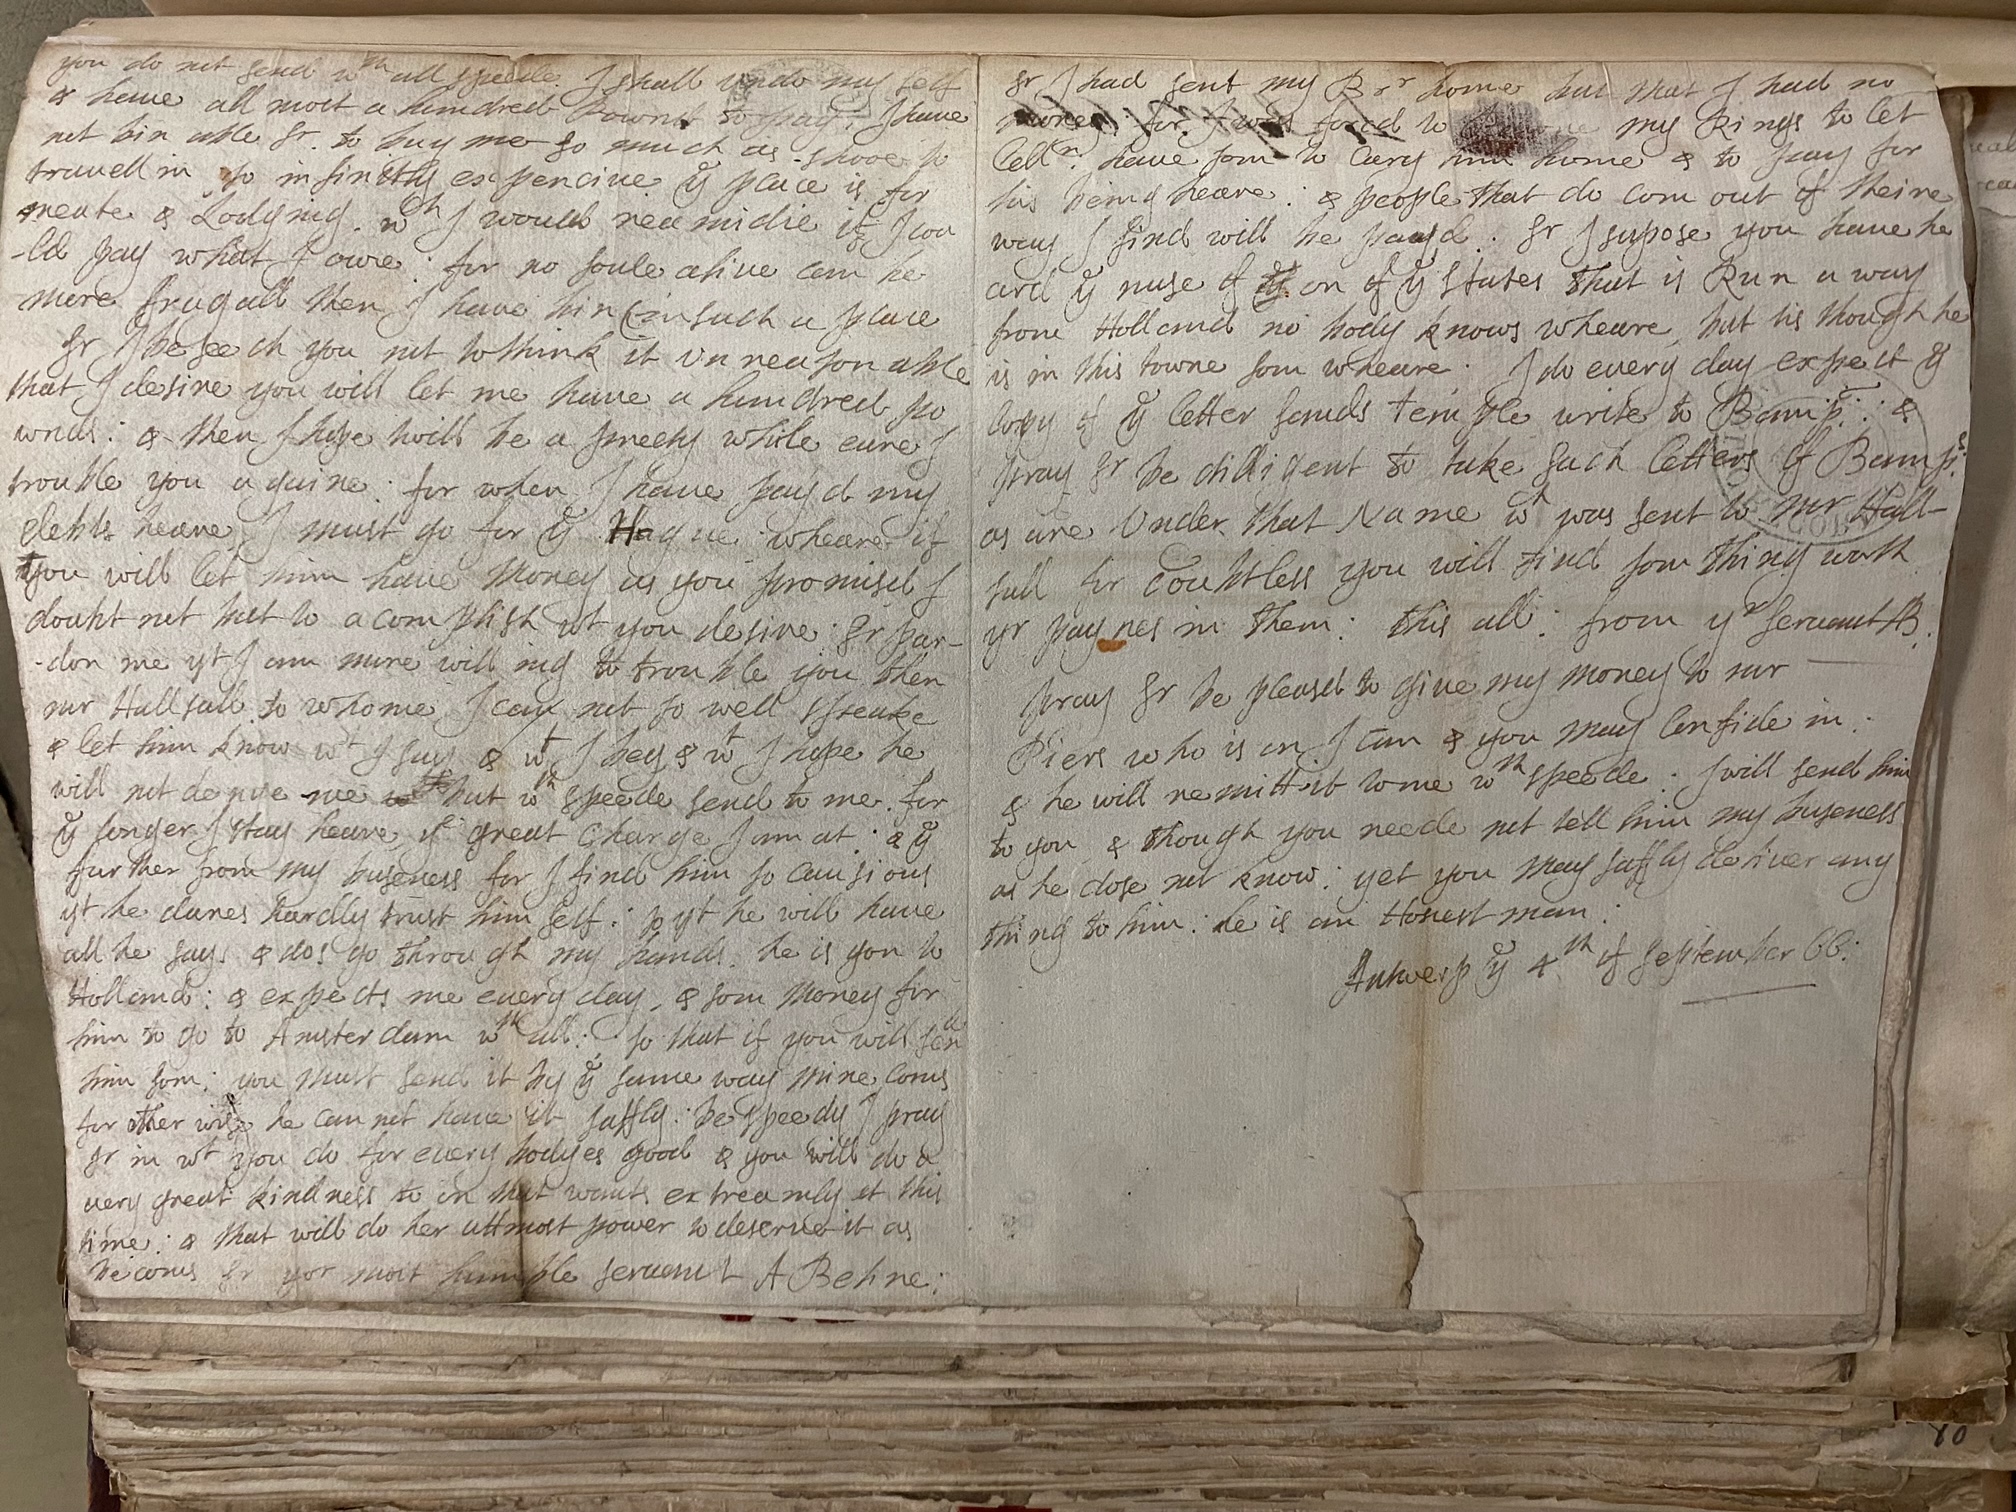 you do not send wth all speede I shall undo my self
& have all most a hundred Pownd to pay: I have
not bin able Sr. to buy me so much as shooe to
travell in so infinitly expencive ye place is for
meate & Lodging. wch I would reamidie if I cou
-ld pay what I owe: for no soule alive can be
more frugall then I have bin in such a place
Sr I beseech you not to think it unreasonable
that I desire you will let me have a hundred po
wnds: & then I hope twill be a preety while eare I
trouble you againe: for when I have payd my
debts heare I must go for ye Hague wheare if
you will let him have Money as you promised I
doubt not but to acomplish wt you desire: Sr par-
-don me yt I am more willing to trouble you then
mr Hallsall to whome I can not so well speake
& let him know wt I say & wt I beg & wt I hope he
will not denye me but wth speede send to me. for
ye longer I stay heare ye great Charge I am at: & ye
further from my buseness for I find him so causious
yt he dares hardly trust him self: so yt he will have
all he says & dos go through my hands. he is gon to
Holland: & expects me every day, & som Money for
him to go to Amsterdam wth all: so that if you will send
him som: you must send it by ye same way mine coms
for other wise he can not have it saffly: be speedy I pray
Sr in wt you do for every bodyes good & you will do a
very great kindness to on that wants extreamly at this
time: & that will do her uttmost power to deserve it as
becoms Sr yor most humble servant A Behne:
Sr I had sent my Brr home but that I had no
money: for I was forced to my Rings to let
Celln: have som to cary him home & to pay for
his being heare: & people that do com out of theire
way I find will be payd: Sr I supose you have he
ard ye nuse of on of ye States that is Run a way
from Holland no body knows wheare, but tis though he
is in this towne som wheare: I do every day expect ye
Copy of ye letter sands Temple write to Bamp: &
pray Sr be dilligent to take such letters of Bamps:
as are Under that Name wt was sent to mr Hall-
sall for doubtless you will find som thing worth
yr paynes in them: this all: from yr servant AB.
pray Sr be pleased to give my money to mr
Piers who is on I can & you may Confide in:
& he will remitt it to me wth speede: I will send him
to you & though you neede not tell him my buseness
as he dose not know: yet you may saffly deliver any
thing to him: he is an Honest man:
Antwerp ye 4th of September 66:
80